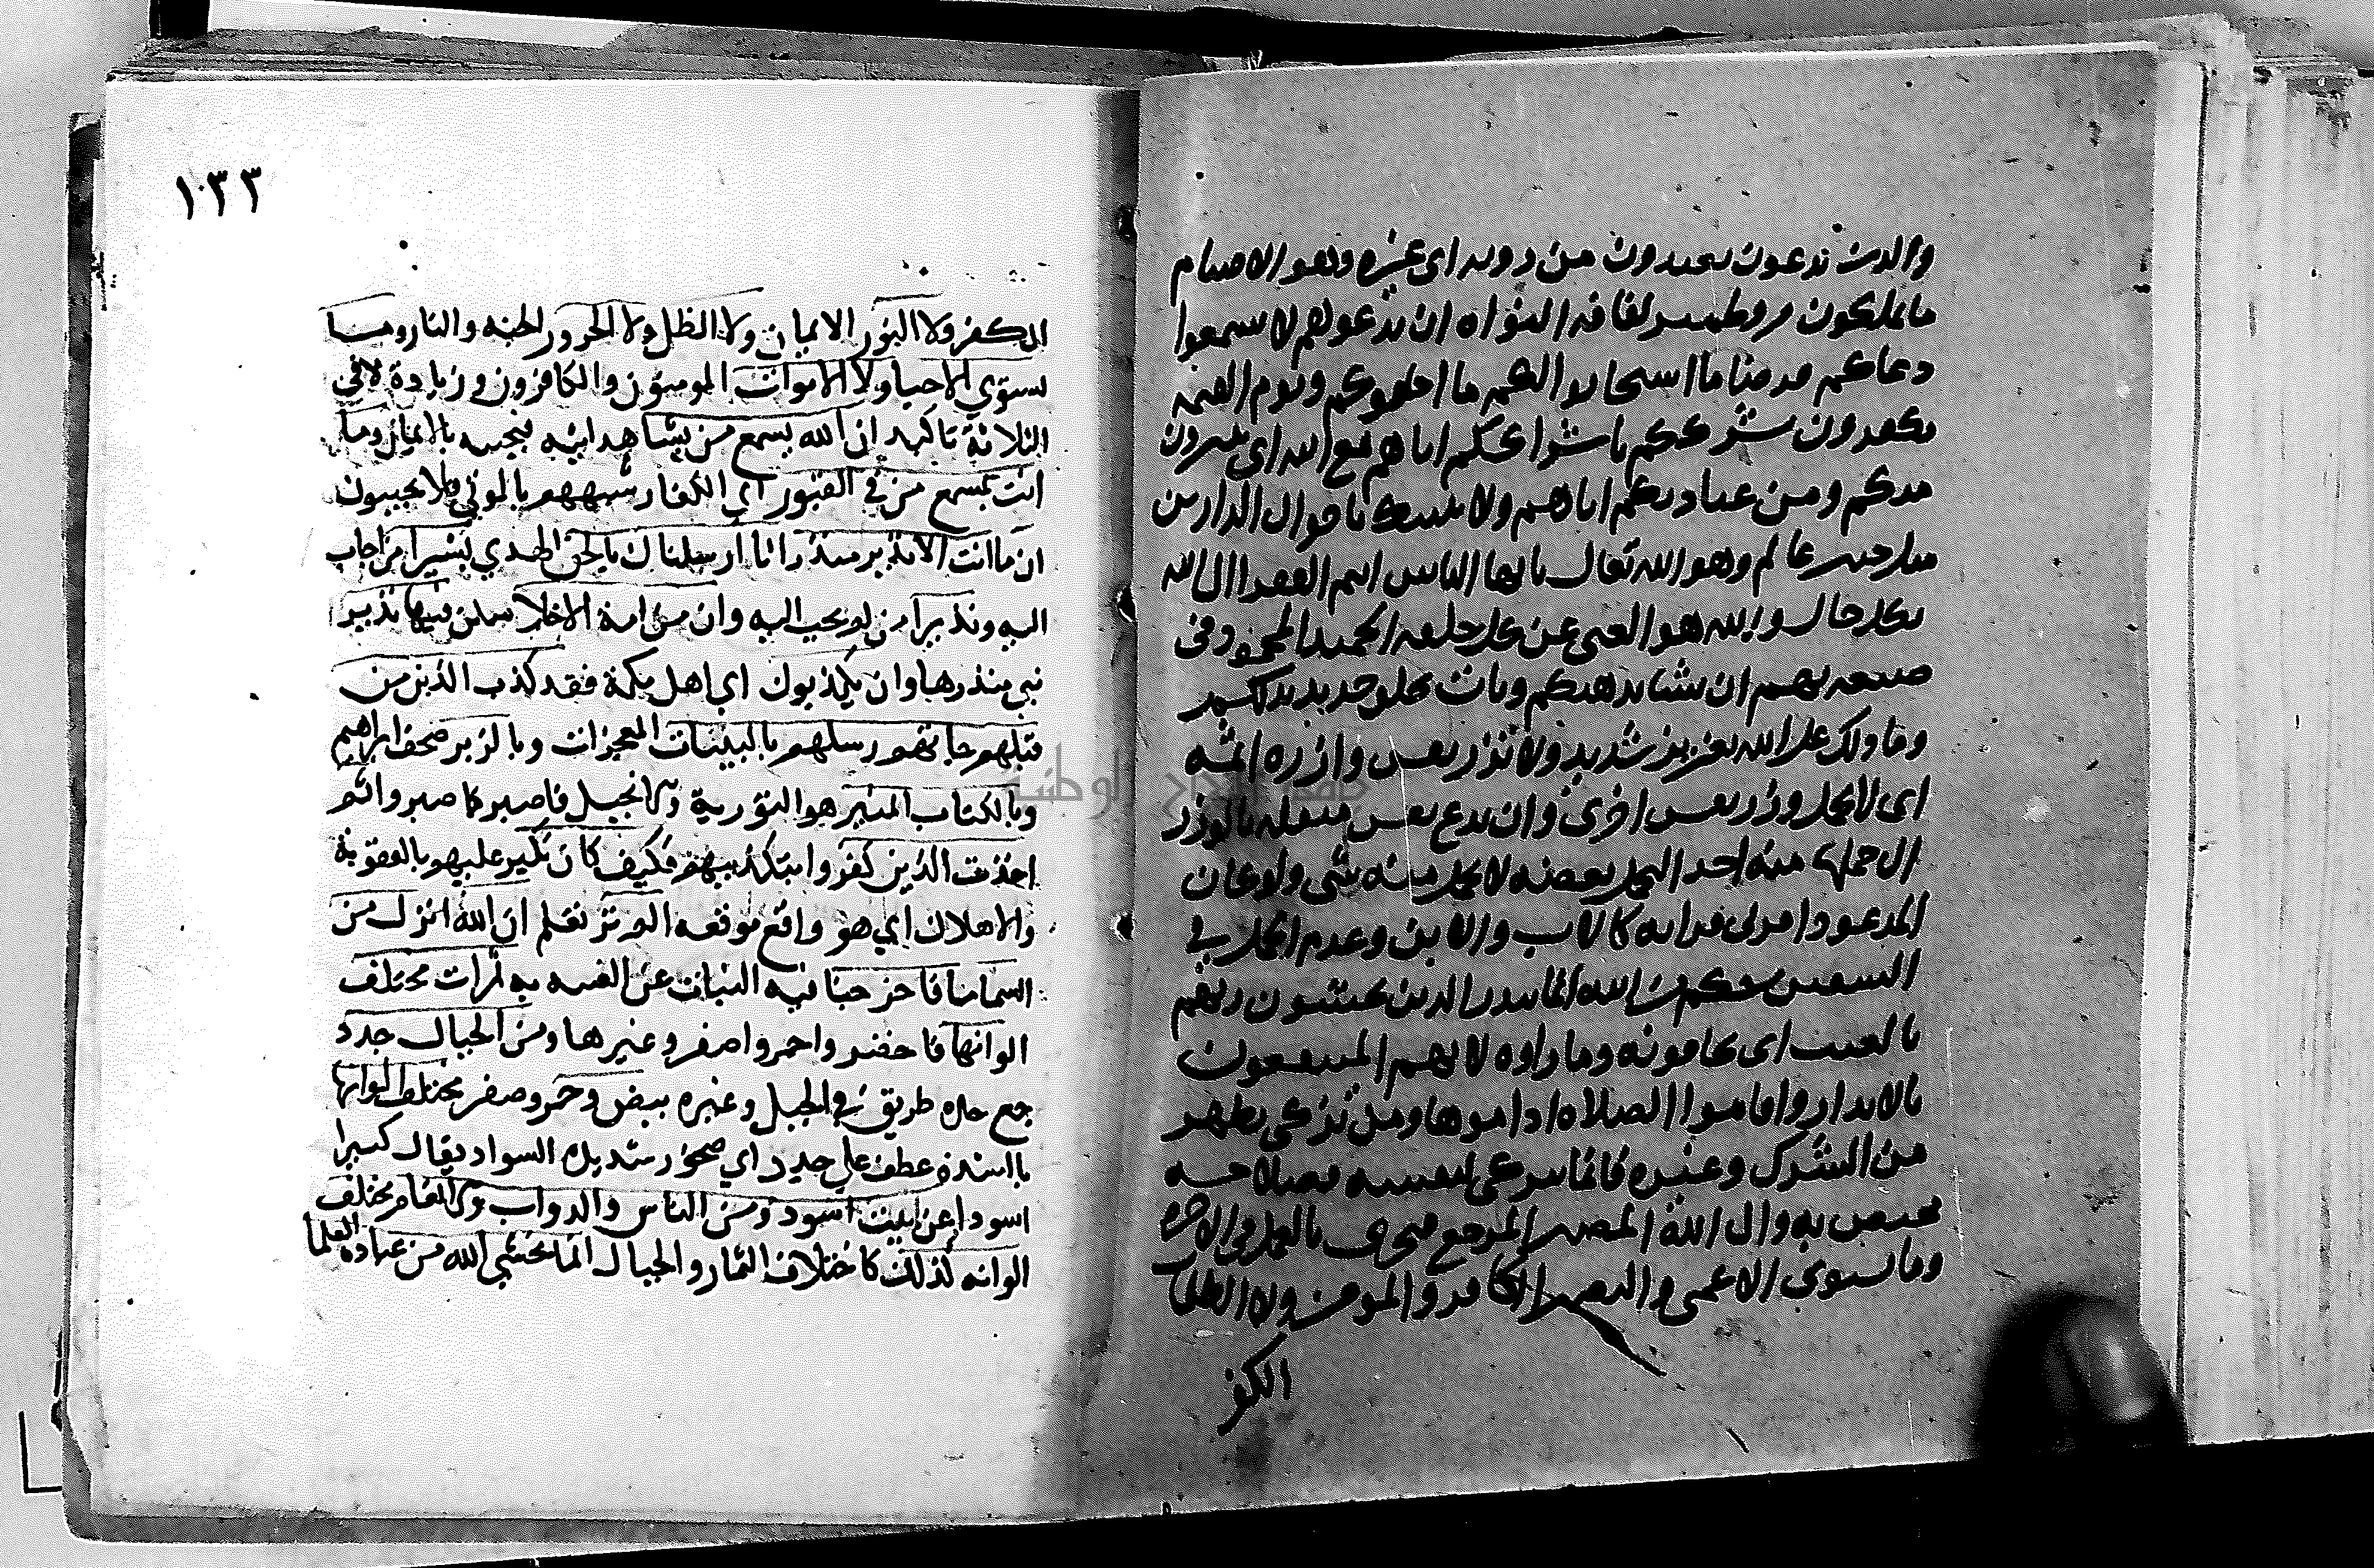 والذين تدعون تعبدون من دونه اى غيره وهو الاصنام
ما يملكون من قطمير لفافة النواه ان تدعوهم لا يسمعوا
دعاكم فرضا ما استجابوا لكم ما اجابوكم ويوم القيمه
يكفرون بشرككم باشراككم اياهم مع الله اى يتبرون
منكم ومن عبادتكم اياهم ولا ينبيك باحوال الدارين
مثل خبير عالم وهو الله تعالى يا ايها الناس انتم الفقرا الى الله
بكل حال والله هو الغنى عن كل خلقه الحميد المحمود فى
صنعه بهم ان يشا يذهبكم ويات بخلق جديد بدلكم
وما ذلك على الله بعزيز شديد ولا تزر نفس وازره اثمه
اى لا تحمل وزر نفس اخرى وان تدع نفس مثقله بالوزر
الى حملها منه احد اليحمل بعضه لا يحمل منه شى ولو كان
المدعو ذا قربى قرابه كالاب والابن وعدم الحمل فى
الشقين حكم من الله انما تنذر الذين يخشون ربهم
بالغيب اى يخافونه وما راوه لانهم المنتفعون
بالانذار واقاموا الصلاه اداموها ومن تزكى تطهر
من الشرك وغيره فانما يتزكى لنفسه فصلاحه
مختص به والى الله المصير المرجع فيجزى بالعمل فى الاخره
وما يستوى الاعمى والبصير الكافر والمومن ولا الظلمات
الكفر
١٣٣
الكفر ولا النور الايمان ولا الظل ولا الحرور الجنه والنار وما
يستوي الاحيا ولا الاموات المومنون والكافرون وزيادة لا في
الثلاثة تاكيد ان الله يسمع من يشا هدايته فيجيبه بالايمان وما
انت بمسمع من في القبور اي الكفار شبههم بالموتى فلا يجيبون
ان ما انت الا نذير منذر انا ارسلناك بالحق الهدي بشيرا من اجاب
اليه ونذيرا من لم يجب اليه وان من امة الا خلا سلف فيها نذير
نبي ينذرها وان يكذبوك اي اهل مكة فقد كذب الذين من
قبلهم جاتهم رسلهم بالبينات المعجزات وبالزبر صحف ابراهيم
وبالكتاب المنير هو التورية والانجيل فاصبر كما صبروا ثم
اخذت الذين كفروا بتكذيبهم فكيف كان نكير عليهم بالعقوبة
والاهلاك اي هو واقع موقعه الم تر تعلم ان الله انزل من
السما ما فاخرجنا فيه التفات عن الغيبه به ثمرات مختلف
الوانها كاخضر واحمر واصفر وغيرها ومن الجبال جدد
جمع جده طريق في الجبل وغيره بيض وحمر وصفر مختلف الوانها
بالشدة عطف على جدد اي صخور شديده السواد يقال كثيرا
اسود غربيب اسود ومن الناس والدواب والانعام مختلف
الوانه كذلك كاختلاف الثمار والجبال انما يخشي الله من عباده العلما
جامعة النجاح الوطنية